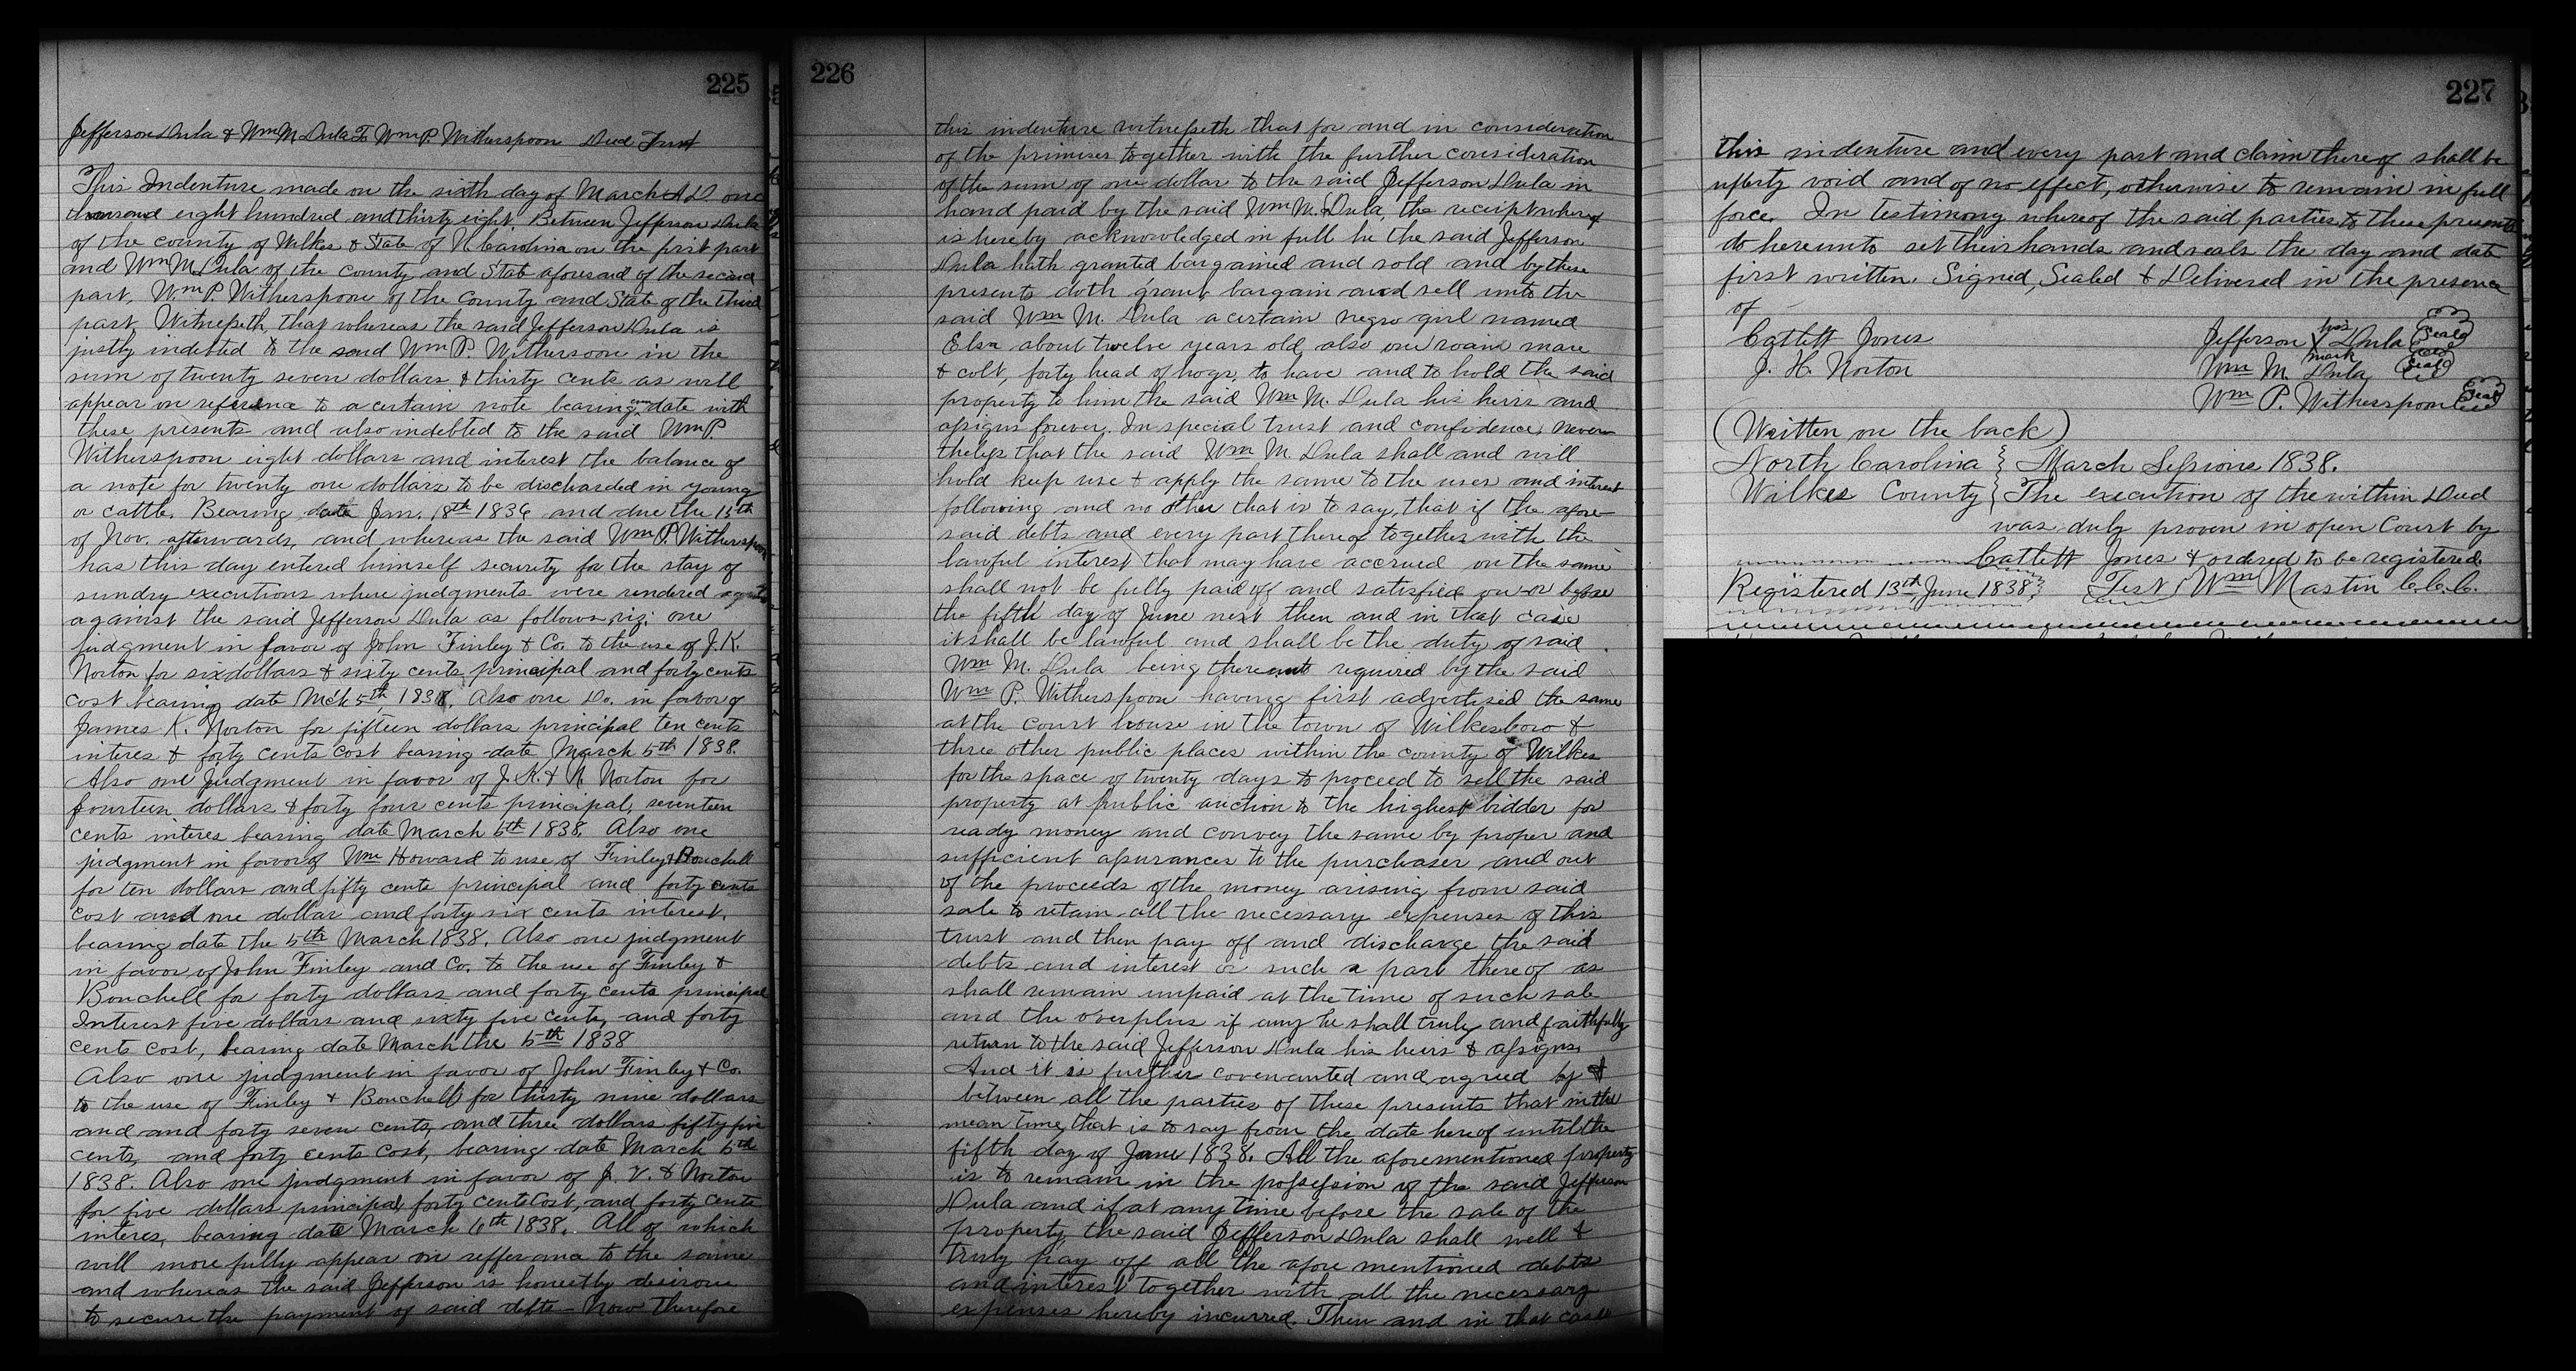 225
Jefferson Dula & Wm M Dula To Wm P. Witherspoon Deed Trust
This Indenture made on the sixth day of March A.D. one
thousand eight hundred and thirty eight. Between Jefferson Dula
of the county of Wilkes & State of N. Carolina on the first part
and Wm M. Dula of the county and State aforesaid of the second
part, Wm P. Witherspoon of the County and State of the third
part, Witnesseth, that whereas the said Jefferson Dula is
justly indebted to the said Wm P. Withersoon in the
sum of twenty seven dollars & thirty cents as will
appear on reference to a certain note bearing even date with
these presents and also indebted to the said Wm P.
Witherspoon eight dollars and interest the balance of
a note for twenty one dollars to be discharded in young
or cattle. Bearing date Jan. 18th 1836 and due the 15th
of Nov. afterwards, and whereas the said Wm P. Witherspoon
has this day entered himself security for the stay of
sundry executions where judgments were rendered
against the said Jefferson Dula as follows, viz: one
judgment in favor of John Finley & Co. to the use of J. K.
Norton for six dollars & sixty cents principal and forty cents
cost bearing date Mch 5th, 1838. Also one Do. in favor of
James K. Norton for fifteen dollars principal ten cents
interes & forty cents cost bearing date March 5th 1838.
Also one judgment in favor of J. K. & N. Norton for
fourteen dollars & forty four cents principal, seventeen
cents interes bearing date March 5th 1838. Also one
judgment in favor of Wm Howard to use of Finley & Bouchell
for ten dollars and fifty cents principal and forty cents
cost and one dollar and forty six cents interest,
bearing date the 5th March 1838. Also one judgment
in favor of John Finley and Co. to the use of Finley &
Bouchell for forty dollars and forty cents principal
Interest five dollars and sixty five cents, and forty
cents cost, bearing date March the 5th 1838
Also one judgment in favor of John Finley & Co.
to the use of Finley & Bouchell for thirty nine dollars
and and forty seven cents, and three dollars fifty five
cents, and forty cents cost, bearing date March 5th
1838. Also one judgment in favor of J. V. & Norton
for five dollars principal, forty cents cost, and forty cents
interes, bearing date March 6th 1838. All of which
will more fully appear on refferance to the same
and whereas the said Jefferson is honestly desirous
to secure the payment of said debts - Now therefore
226
this indenture witnesseth that for and in consideration
of the primises together with the further consideration
of the sum of one dollar to the said Jefferson Dula in
hand paid by the said Wm M. Dula, the receipt whereof
is hereby acknowledged in full he the said Jefferson
Dula hath granted bargained and sold and by these
presents doth grant bargain and sell unto the
said Wm M. Dula a certain negro girl named
Elsa about twelve years old, also one roan mare
& colt, forty head of hogs, to have and to hold the said
property to him the said Wm M. Dula his heirs and
assigns forever. In special trust and confidence, never-
theless that the said Wm M. Dula shall and will
hold keep use & apply the same to the uses and interest
following and no other that is to say, that if the afore-
said debts and every part thereof together with the
lawful interest that may have accrued on the same
shall not be fully paid off and satisfied on or before
the fifth day of June next then and in that case
it shall be lawful and shall be the duty of said
Wm M. Dula being thereunto required by the said
Wm P. Witherspoon having first advertised the same
at the court house in the town of Wilkesboro &
three other public places within the county of Wilkes
for the space of twenty days to proceed to sell the said
property at public auction to the highest bidder for
ready money and convey the same by proper and
sufficient assurances to the purchaser and out
of the proceeds of the money arising from said
sale to retain all the necessary expenses of this
trust and then pay off and discharge the said
debts and interest or such a part thereof as
shall remain unpaid at the time of such sale
and the overplus if any he shall truly and faithfully
return to the said Jefferson Dula his heirs & assigns.
And it is further covenanted and agreed by &
between all the parties of these presents that in the
mean time, that is to say from the date hereof until the
fifth day of June 1838. All the aforementioned property
is to remain in the possession of the said Jefferson
Dula and if at any time before the sale of the
property the said Jefferson Dula shall well &
truly pay off all the afore mentioned debts
and interest together with all the necessary
expenses hereby incurred. Then and in that case
227
this indenture and every part and claim thereof shall be
utterly void and of no effect, otherwise to remain in full
force. In testimony whereof the said parties to these presents
do hereunto set their hands and seals the day and date
first written. Signed, Sealed & Delivered in the presence
of
Catlett Jones Jefferson his X mark Dula Seal
J. H. Norton Wm M. Dula Seal
Wm P. Witherspoon Seal
(Written on the back)
North Carolina } March Sessions 1838.
Wilkes County } The execution of the within Deed
was duly proven in open Court by
Catlett Jones & ordered to be registered.
Registered 13th June 1838 } Test Wm Mastin C.C.C.